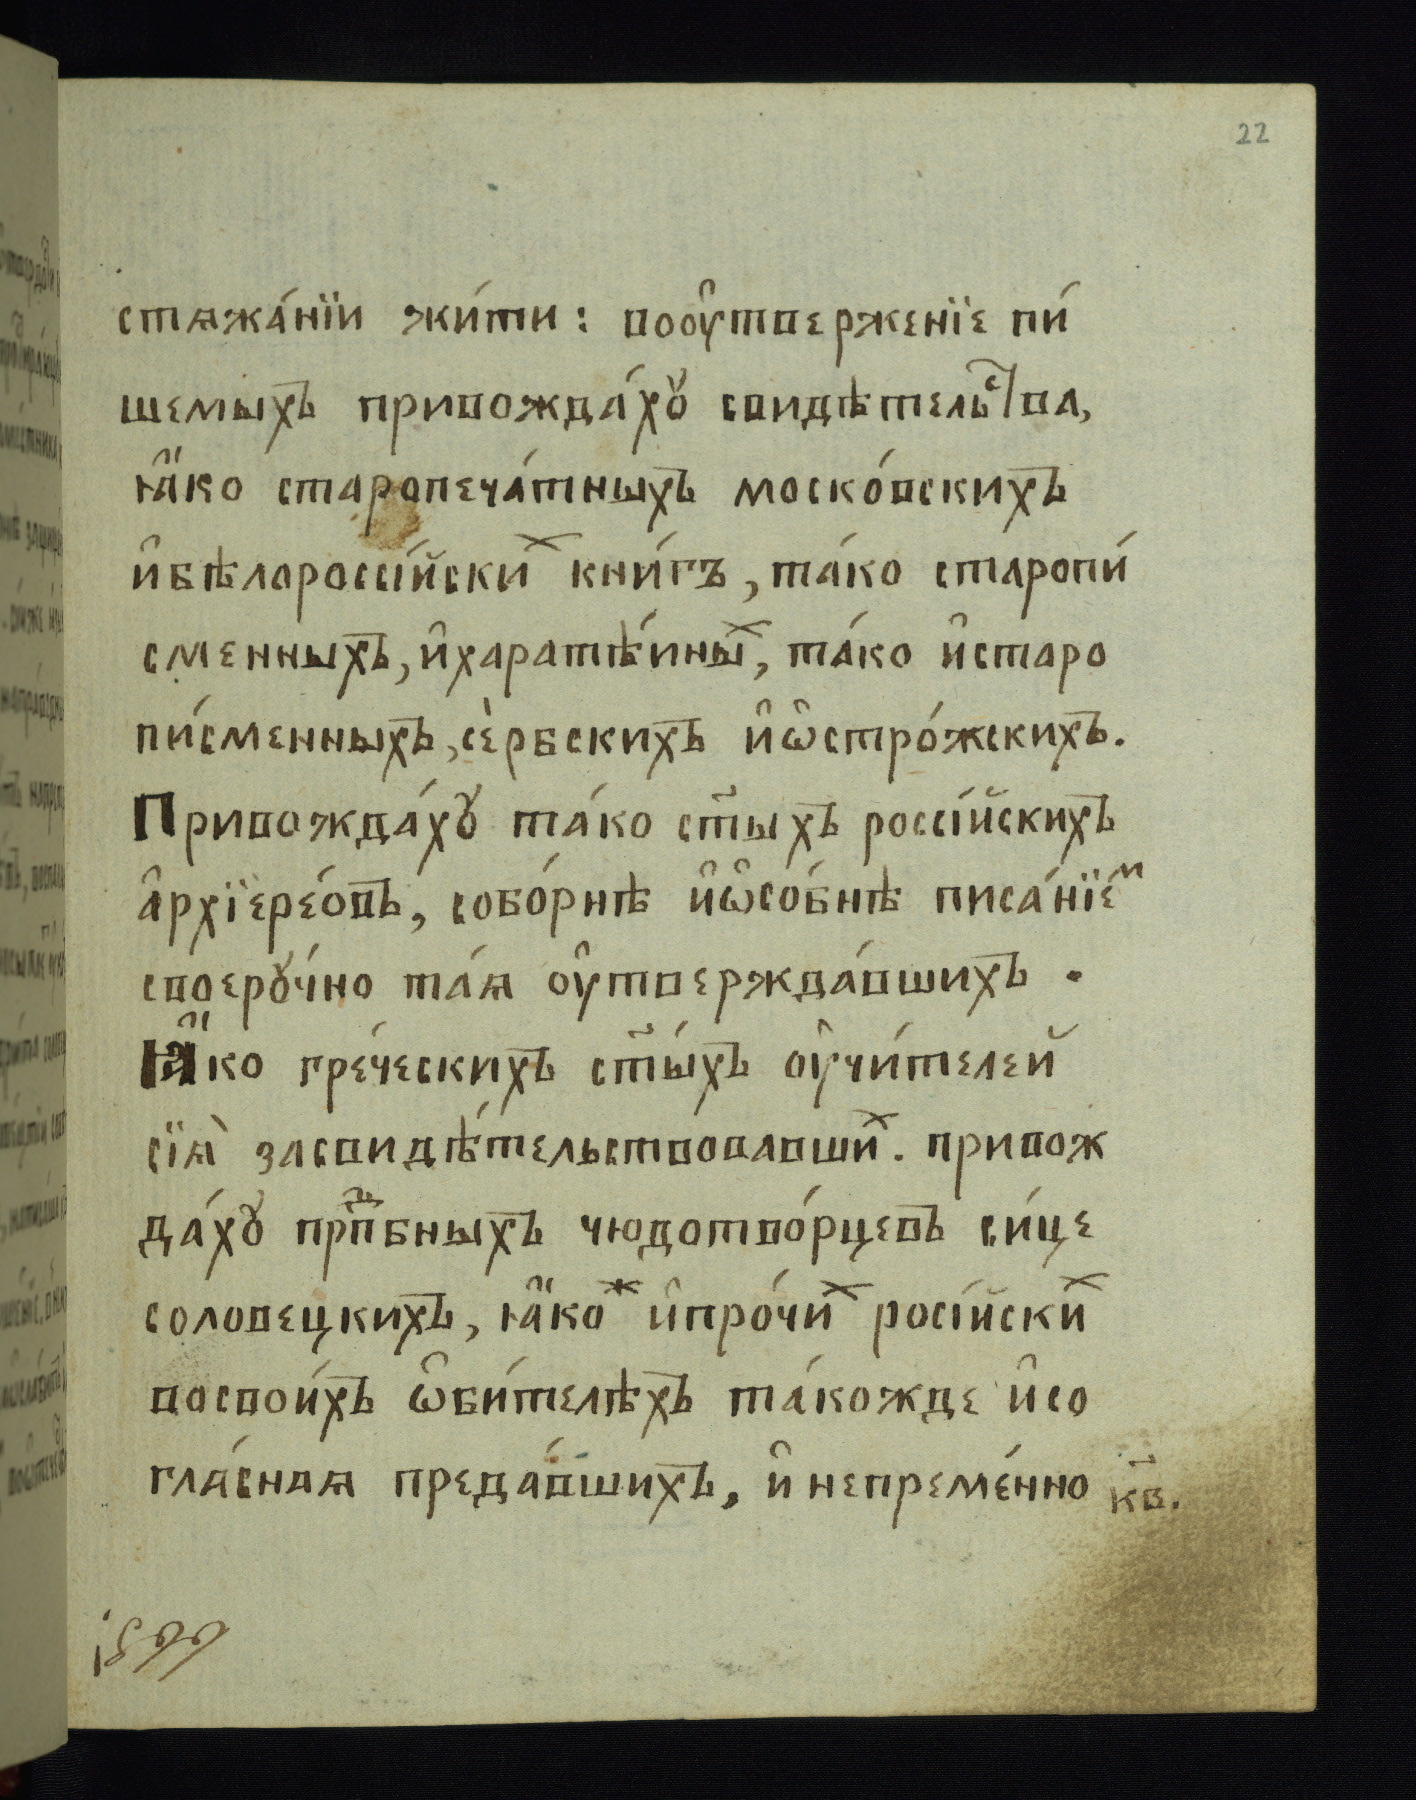 22
стѧжа́нїи жи́ти: воᲂу҆тверженїе пи́
шемыхъ привожда́хꙋ свидѣтельⷭ҇тва,
ꙗ҆́ко старопеча́тныхъ моско́вскихъ
и҆бѣлоросси́йскиⷯ кни́гъ, та́ко старопи́
сменныхъ, и҆харатѣ́йныⷯ, та́ко и҆старо
пи́сменныхъ, се́рбскихъ и҆ѡ҆стро́жскихъ.
Привожда́хꙋ та́ко ст҃ыхъ россі́йскихъ
а҆рхїере́ѡвъ, собо́рнѣ и҆ѡ҆со́бнѣ писа́нїеⷨ
своерꙋ́чно та́ѧ ᲂу҆твержда́вшихъ.
Ꙗ҆́ко гре́ческихъ ст҃ы́хъ ᲂу҆чи́телей
сїѧ̀ засвидѣ́тельствовавшиⷯ. привож
да́хꙋ прпⷣбныхъ чюдотво́рцевъ си́це
соловецкихъ, ꙗ҆́коⷤ и҆про́чиⷯ росі́йскиⷯ
восвои́хъ ѡ҆би́телѣхъ та́кожде и҆со
гла́снаѧ преда́вшихъ, и҆ непреме́нно
к҃в.